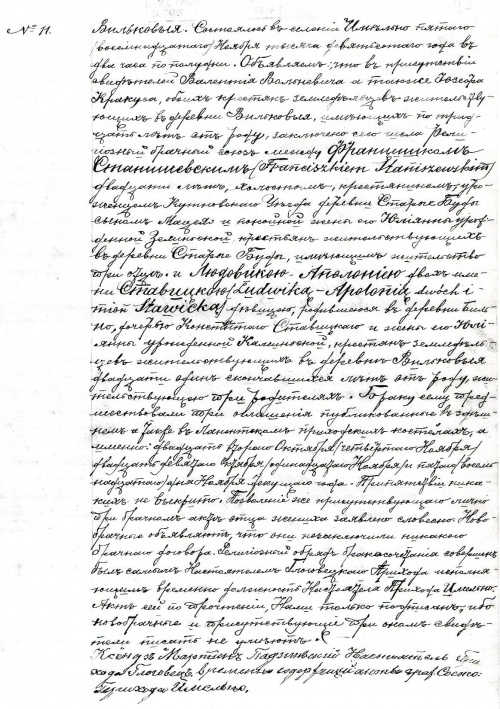 № 11.
Вильковыя. Состоялось въ селеніи Имѣльно пятаго
/восемнадцатаго/ Ноября тысяча девятьсотаго года въ
два часа по полудни. Объявляемъ, что въ присутствіи
свидѣтелей Валентія Вольневича а также Іозефа
Кракуса, обоихъ крестьянъ земледѣльцевъ жительствую-
ющихъ въ деревни Вильковыя, имѣющихъ по трид-
цать лѣтъ отъ роду, заключено сего числа рели-
гіозный брачный союзъ между Францишкомъ
Станишевскимъ /Franciszkiem Staniszewskim/
двадцати лѣтъ, холостымъ, крестьяниномъ, уро-
женцемъ Кутновскаго Уѣзда деревни Старые Буды
сыномъ Мацея и покойной жены его Юліянны урож-
денной Зелинской, крестьянъ жительствующихъ
въ деревни Старые Буды, имѣющимъ жительство
при Отцѣ и Людовикою-Аполонією двухъ име-
ни Ставицкою /Ludwika-Apolonia dwoch i-
mion Stawicka/ дѣвицею, родившеюся въ деревни Биль-
но, дочерью Ставицкаго и жены его Юлі-
янны урожденной Калиновской, крестьянъ земледѣль-
цевъ жительствующихъ въ деревни Вильковыя
двадцати одинъ скончавшихся лѣтъ отъ роду, жи-
тельствующею при родителяхъ. Браку сему пред-
шествовали три оглашенія публикованные въ здѣш-
немъ а также въ приходскихъ костелахъ, а
именно: двадцать втораго Октября /четвертаго Ноября/
двадцать девятаго Октября /одинадцатаго Ноября/ и пятаго /восем-
надцатаго/ дня Ноября текущаго года. Препятствій ника-
кихъ не выкрыто. Позволеніе же присутствующаго лично
при брачномъ актѣ отца жениха заявлено словесно. Ново-
брачные объявляютъ, что они незаключили никакого
брачнаго договора. Религіозный обрядъ бракосочетанія совершенъ
былъ самымъ Настоятелемъ Прихода исполня-
ющимъ временно должность Настоятеля Прихода Имѣльно.
Актъ сей по прочтеніи Нами только подписанъ, ибо
новобрачные и присутствующіе при ономъ свидѣ-
тели писать не умѣютъ.
Ксендзъ Мартинъ Настоятель При-
хода временно содержащій акты граж. Сост.
Прихода Имѣльно.